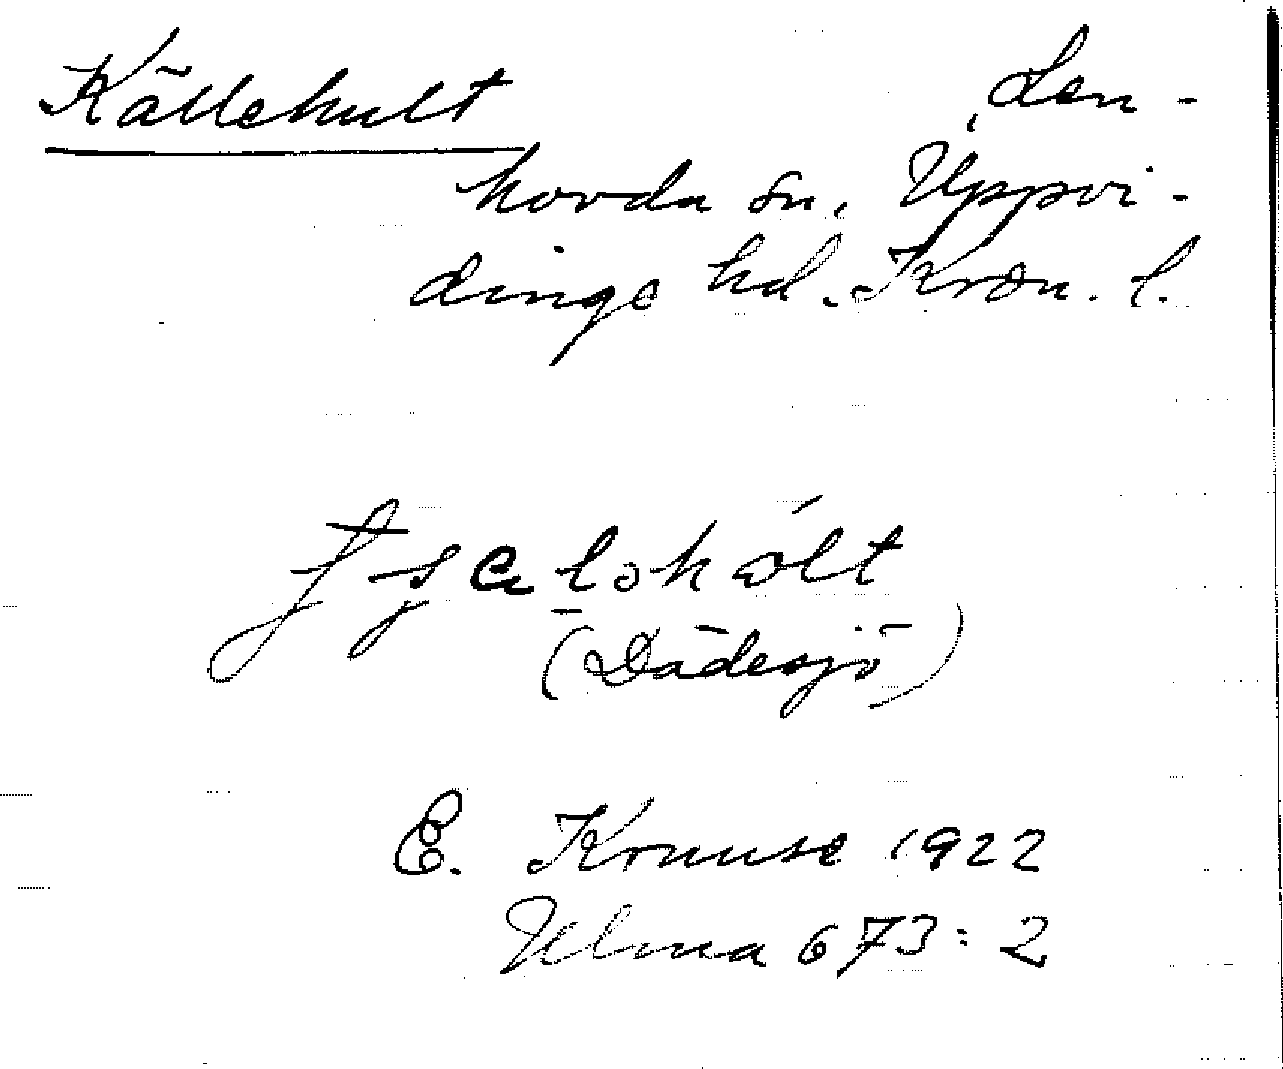 Källehult Len-
hovda sn, Uppvi-
dinge hd. Kron. l.
(Dädesjö)
E. Kruuse 1922
Ulma 673:2